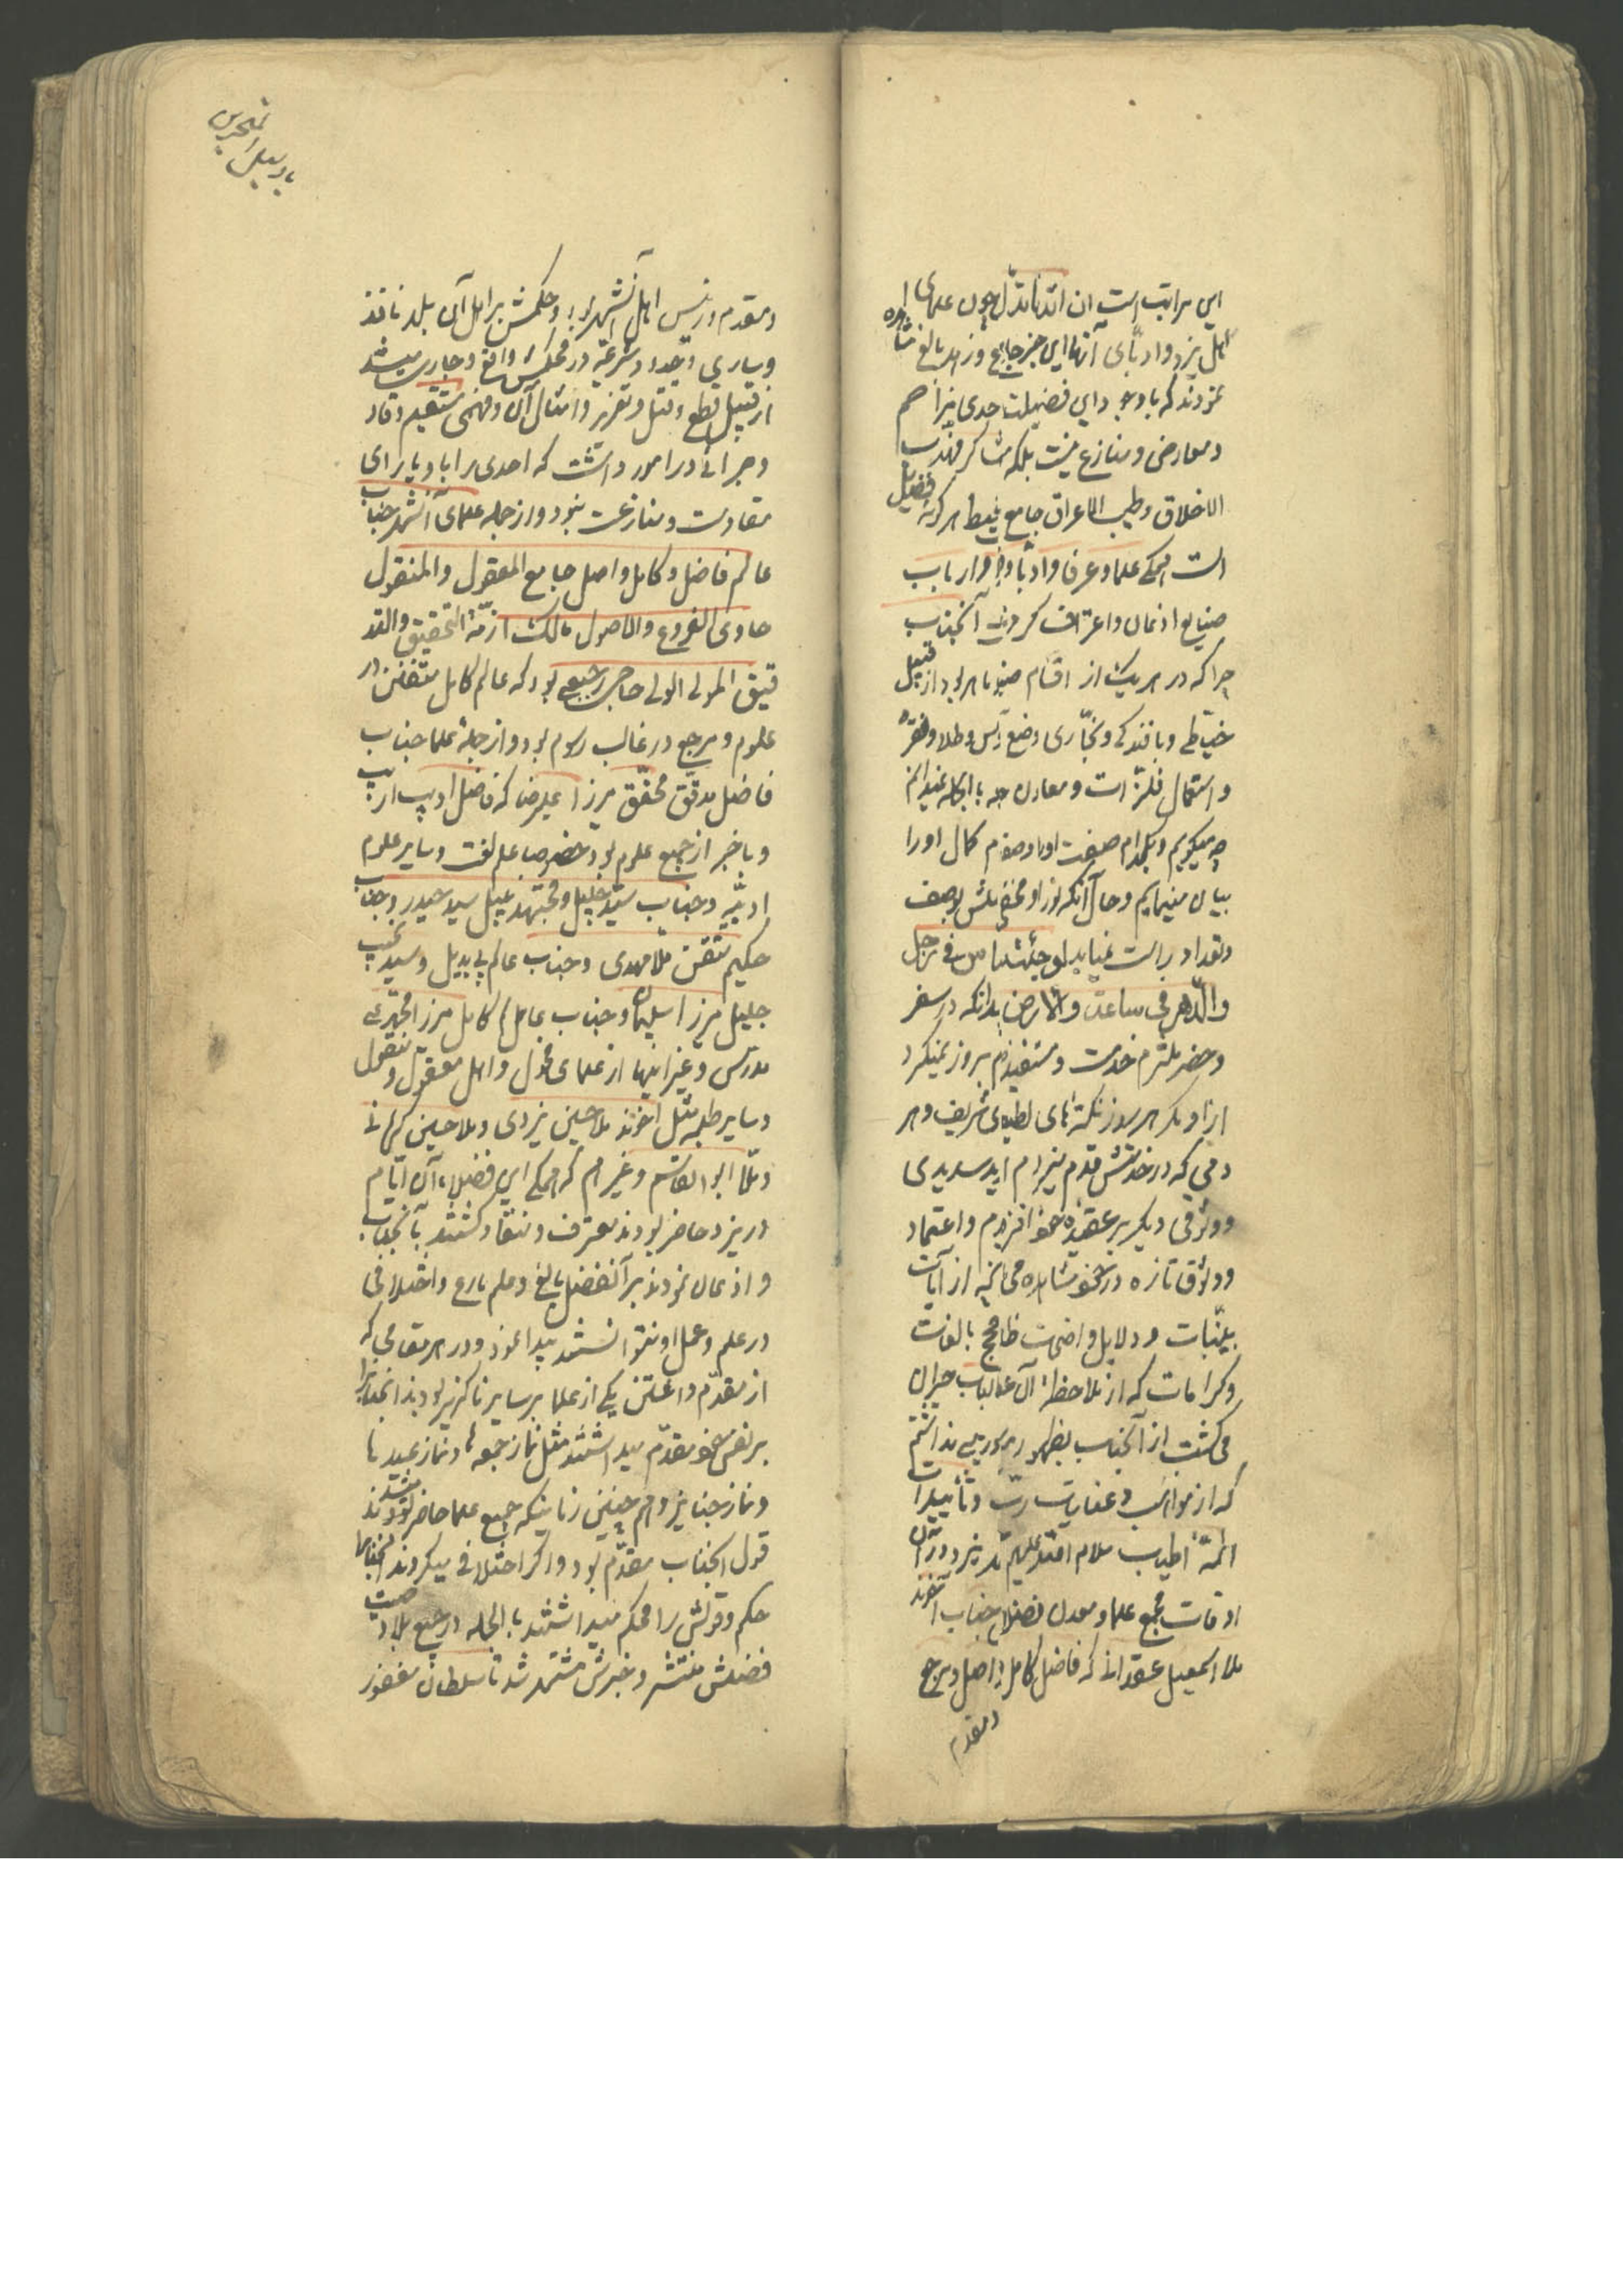 این مراتب است ان اثارنا تدل چون علمای
اهل یزد و ادبای آنها این جبر جامع و زاهد بالغ مشاهده
نمودند که با وجود این فضیلت احدی مزاحم
و معارض و منازع نیست بلکه شاکر مهذب
الاخلاق و طیب الاعراق جامع محیط هر گونه فضیلتی
است همگی علما و عرفا و ادبا و ارباب
صنایع اذعان و اعتراف کردند آنجناب
چرا که در هر یک از اقسام صنع ماهر بود از قبیل
خیاطی و بافندگی و نجاری و صنع مس و طلا و نقره
و استعمال فلزات و معادن بالجمله نمیدانم
چه میگویم و بکدام صفت او را وصفم کمال او را
بیان مینمایم و حال آنکه نور او مخفی بلش بوصف
و تعداد راست نیاید لو جئته لرایت الناس فی رجل
والدهر فی ساعة والارض بدانکه در سفر
و حضر ملتزم خدمت و مستفیض بودم روز نمیگذرد
از او مگر هر روز نکته های لطیف شریف و هر
دمی که در خدمتش قدم میزدم امید سدیدی
و وثوقی دیگر بر عقیده خود افزودم و اعتماد
و وثوق تازه در خود مشاهده می از آیات
بینات و دلایل واضحات ظاهر بالغات
و کرامات که از ملاحظه آن عقل الباب حیران
می گشت از آنجناب بظهور میرسید نداشتم
که از مواهب و عنایات رب و تأییدات
ائمه اطیاب سلام الله علیهم در یزد در آن
اوقات مجمع علما و معدن فضلا جناب آخوند
ملا اسمعیل عقدائی که فاضل کامل واصل و مرجع
و مقدم
بادپیل البحرین
و مقدم و رئیس اهل آنشهر بود و حکمش بر اهل آن بلد نافذ
و ساری و حدود شرعیه در محکمش واقع و جاری میشد
از قبیل قطع و قتل و تعزیر و امثال آن و فهمی مستقیم وقاد
و جرأتی در امور داشت که احدی را با او یارای
مقاومت و منازعت نبود و از جمله علمای آنشهر جناب
عالم فاضل و کامل واصل جامع المعقول والمنقول
حاوی الفروع والاصول مالک ازمة التحقیق والتد
قیق المولی الولی حاجی رجبعلی بود که عالم کامل متفنن در
علوم و مرجع در غالب رسوم بود و از جمله علما جناب
فاضل مدقق محقق میرزا علیرضا که فاضل ادیب اریب
و باخبر از جمیع علوم بود خصوصا علم لغت و سایر علوم
ادبیه و جناب سید جلیل و مجتهد نبیل سید حیدر و جناب
حکیم متقن ملا مهدی و جناب عالم بی بدیل و سید نجیب
جلیل میرزا سلیمان و جناب عامل کامل میرزا محمدعلی
مدرس و غیر اینها از علمای فحول و اهل معقول و منقول
و سایر طلبه مثل آخوند ملا حسین یزدی و ملا حسین کرمانی
و ملا ابوالقاسم و غیرهم که همگی این فضلا آن ایام
در یزد حاضر بودند معترف و منقاد گشتند بآنجناب
و اذعان نمودند بر آن فضل بالغ و علم بارع و اختلافی
در علم و عمل او نتوانستند پیدا نمود و در هر مقامی که
از مقدم داشتن یکی از علما بر سایر ناگزیر بودند آنجناب را
بر نفس خود مقدم میداشتند مثل نماز جمعه ها و نماز عیدها
و نماز جنایز و هم چنین زمانیکه جمیع علما حاضر میشدند
قول آنجناب مقدم بود و اگر اختلافی میکردند آنجناب را
حکم و قولش را محکم میداشتند بالجمله در جمیع بلاد صیت
فضلش منتشر و خبرش مشتهر شد تا سلطان مغفور